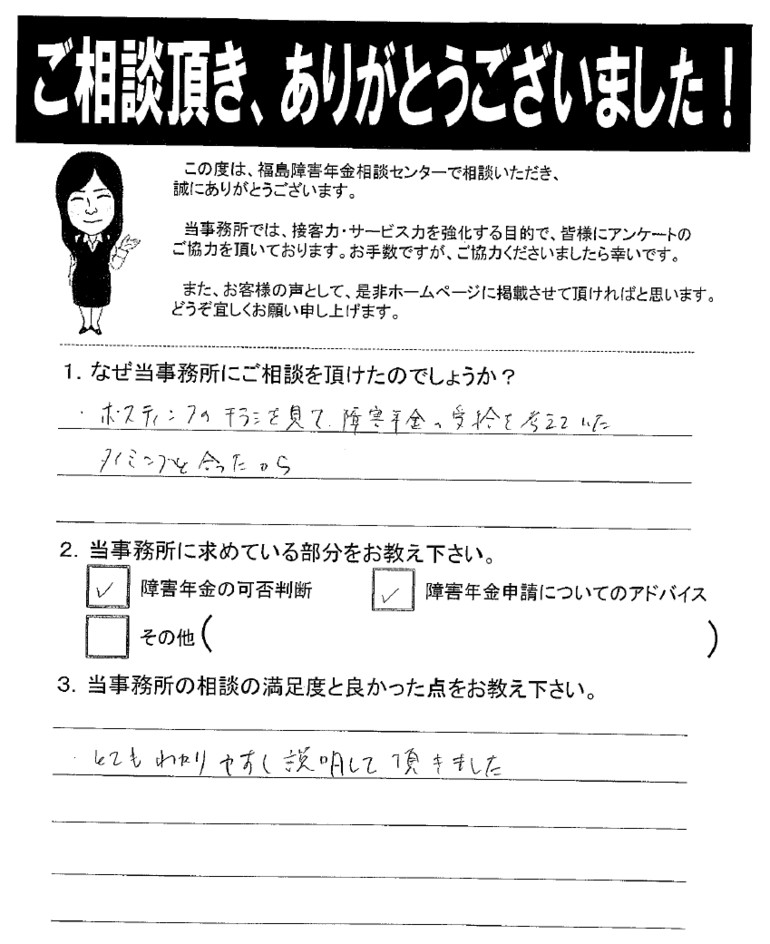 ご相談頂き、ありがとうございました！
この度は、福島障害年金相談センターで相談いただき、
誠にありがとうございます。
当事務所では、接客力・サービス力を強化する目的で、皆様にアンケートの
ご協力を頂いております。お手数ですが、ご協力くださいましたら幸いです。
また、お客様の声として、是非ホームページに掲載させて頂ければと思います。
どうぞ宜しくお願い申し上げます。
1. なぜ当事務所にご相談を頂けたのでしょうか？
・ポスティングのチラシを見て、障害年金の受給を考えていた
タイミングと合ったから
2. 当事務所に求めている部分をお教え下さい。
✓ 障害年金の可否判断 ✓ 障害年金申請についてのアドバイス
その他（ ）
3. 当事務所の相談の満足度と良かった点をお教え下さい。
・とてもわかりやすく説明して頂きました